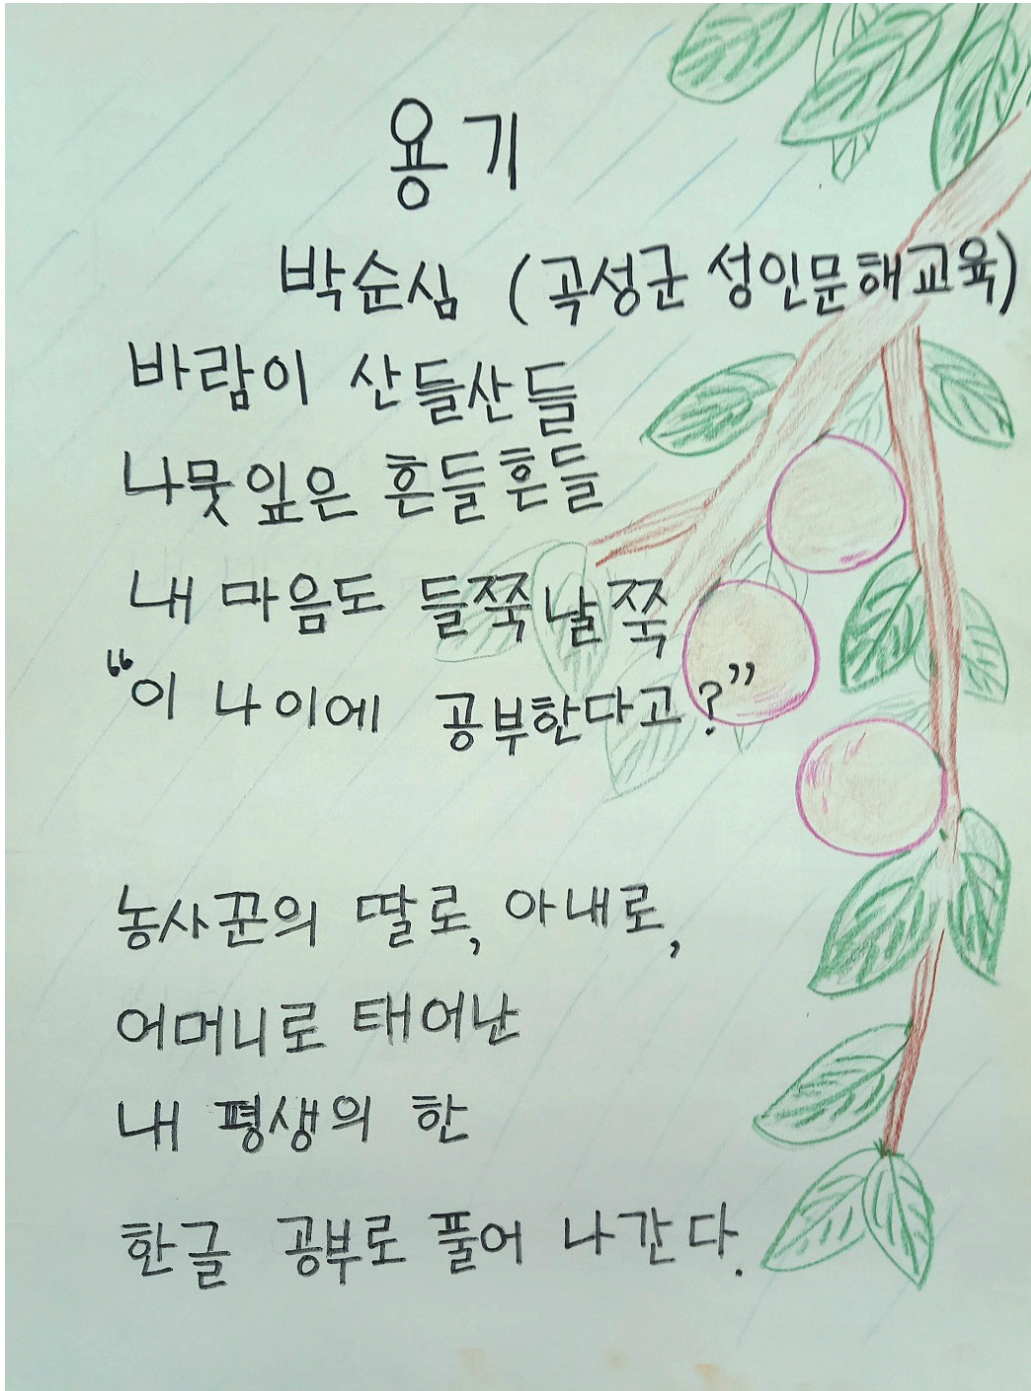 용기
박순심 (곡성군 성인문해교육)
바람이 산들산들
나뭇잎은 흔들흔들
내 마음도 들쭉날쭉
“이 나이에 공부한다고?”
농사꾼의 딸로, 아내로,
어머니로 태어난
내 평생의 한
한글 공부로 풀어 나간다.